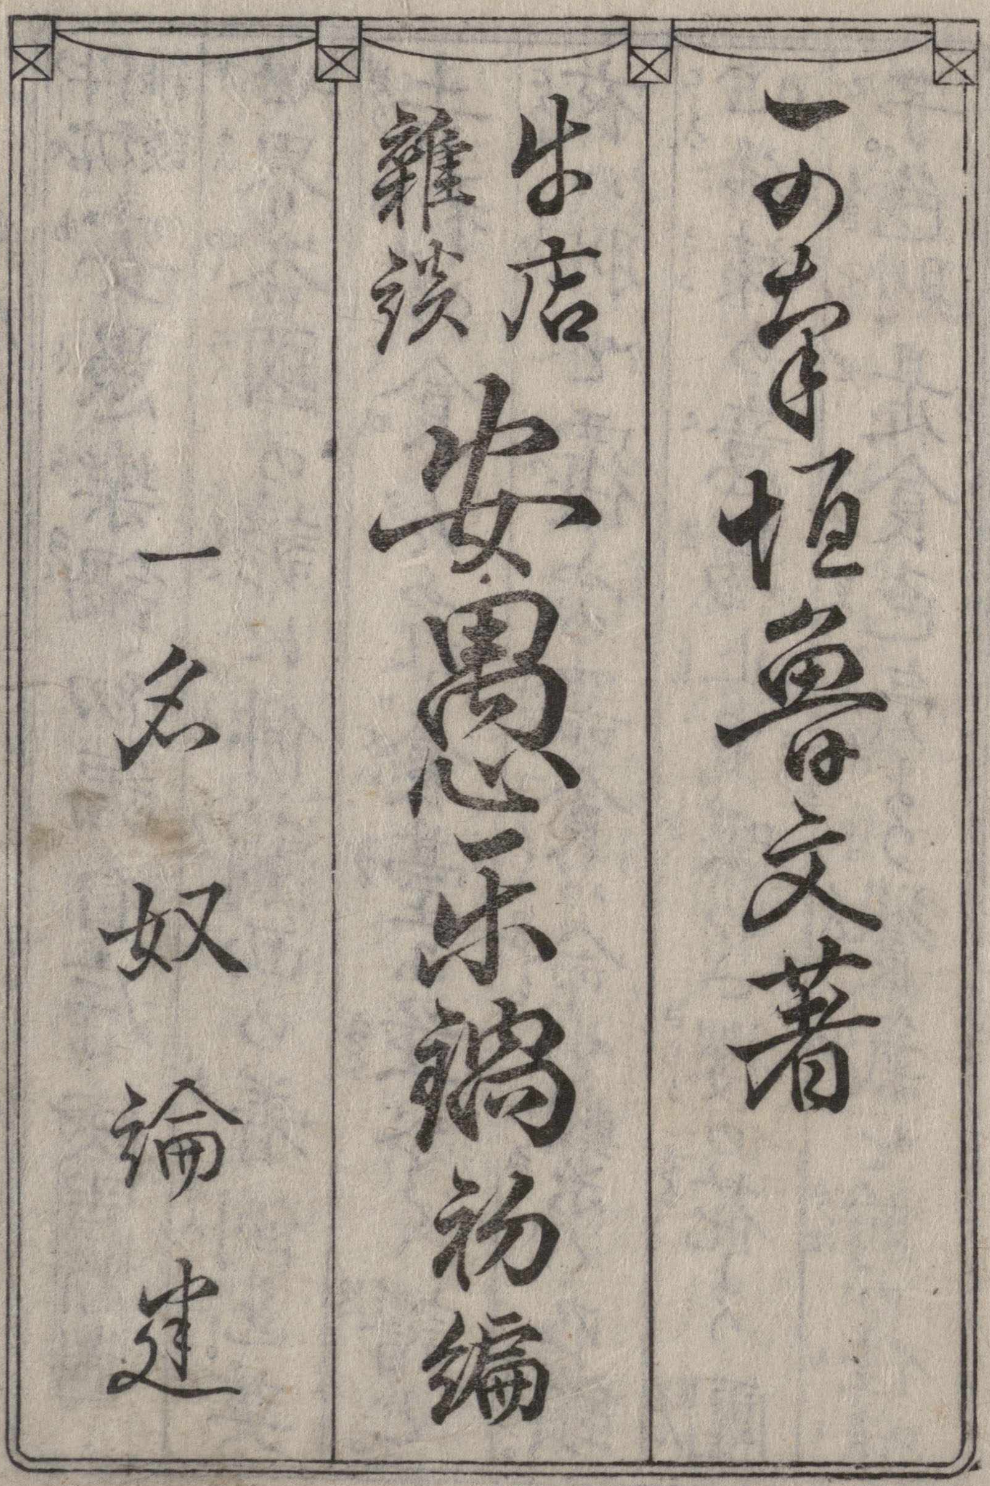 可奈垣魯文著
牛店
雜談
安愚乐鍋初編
一名奴論建